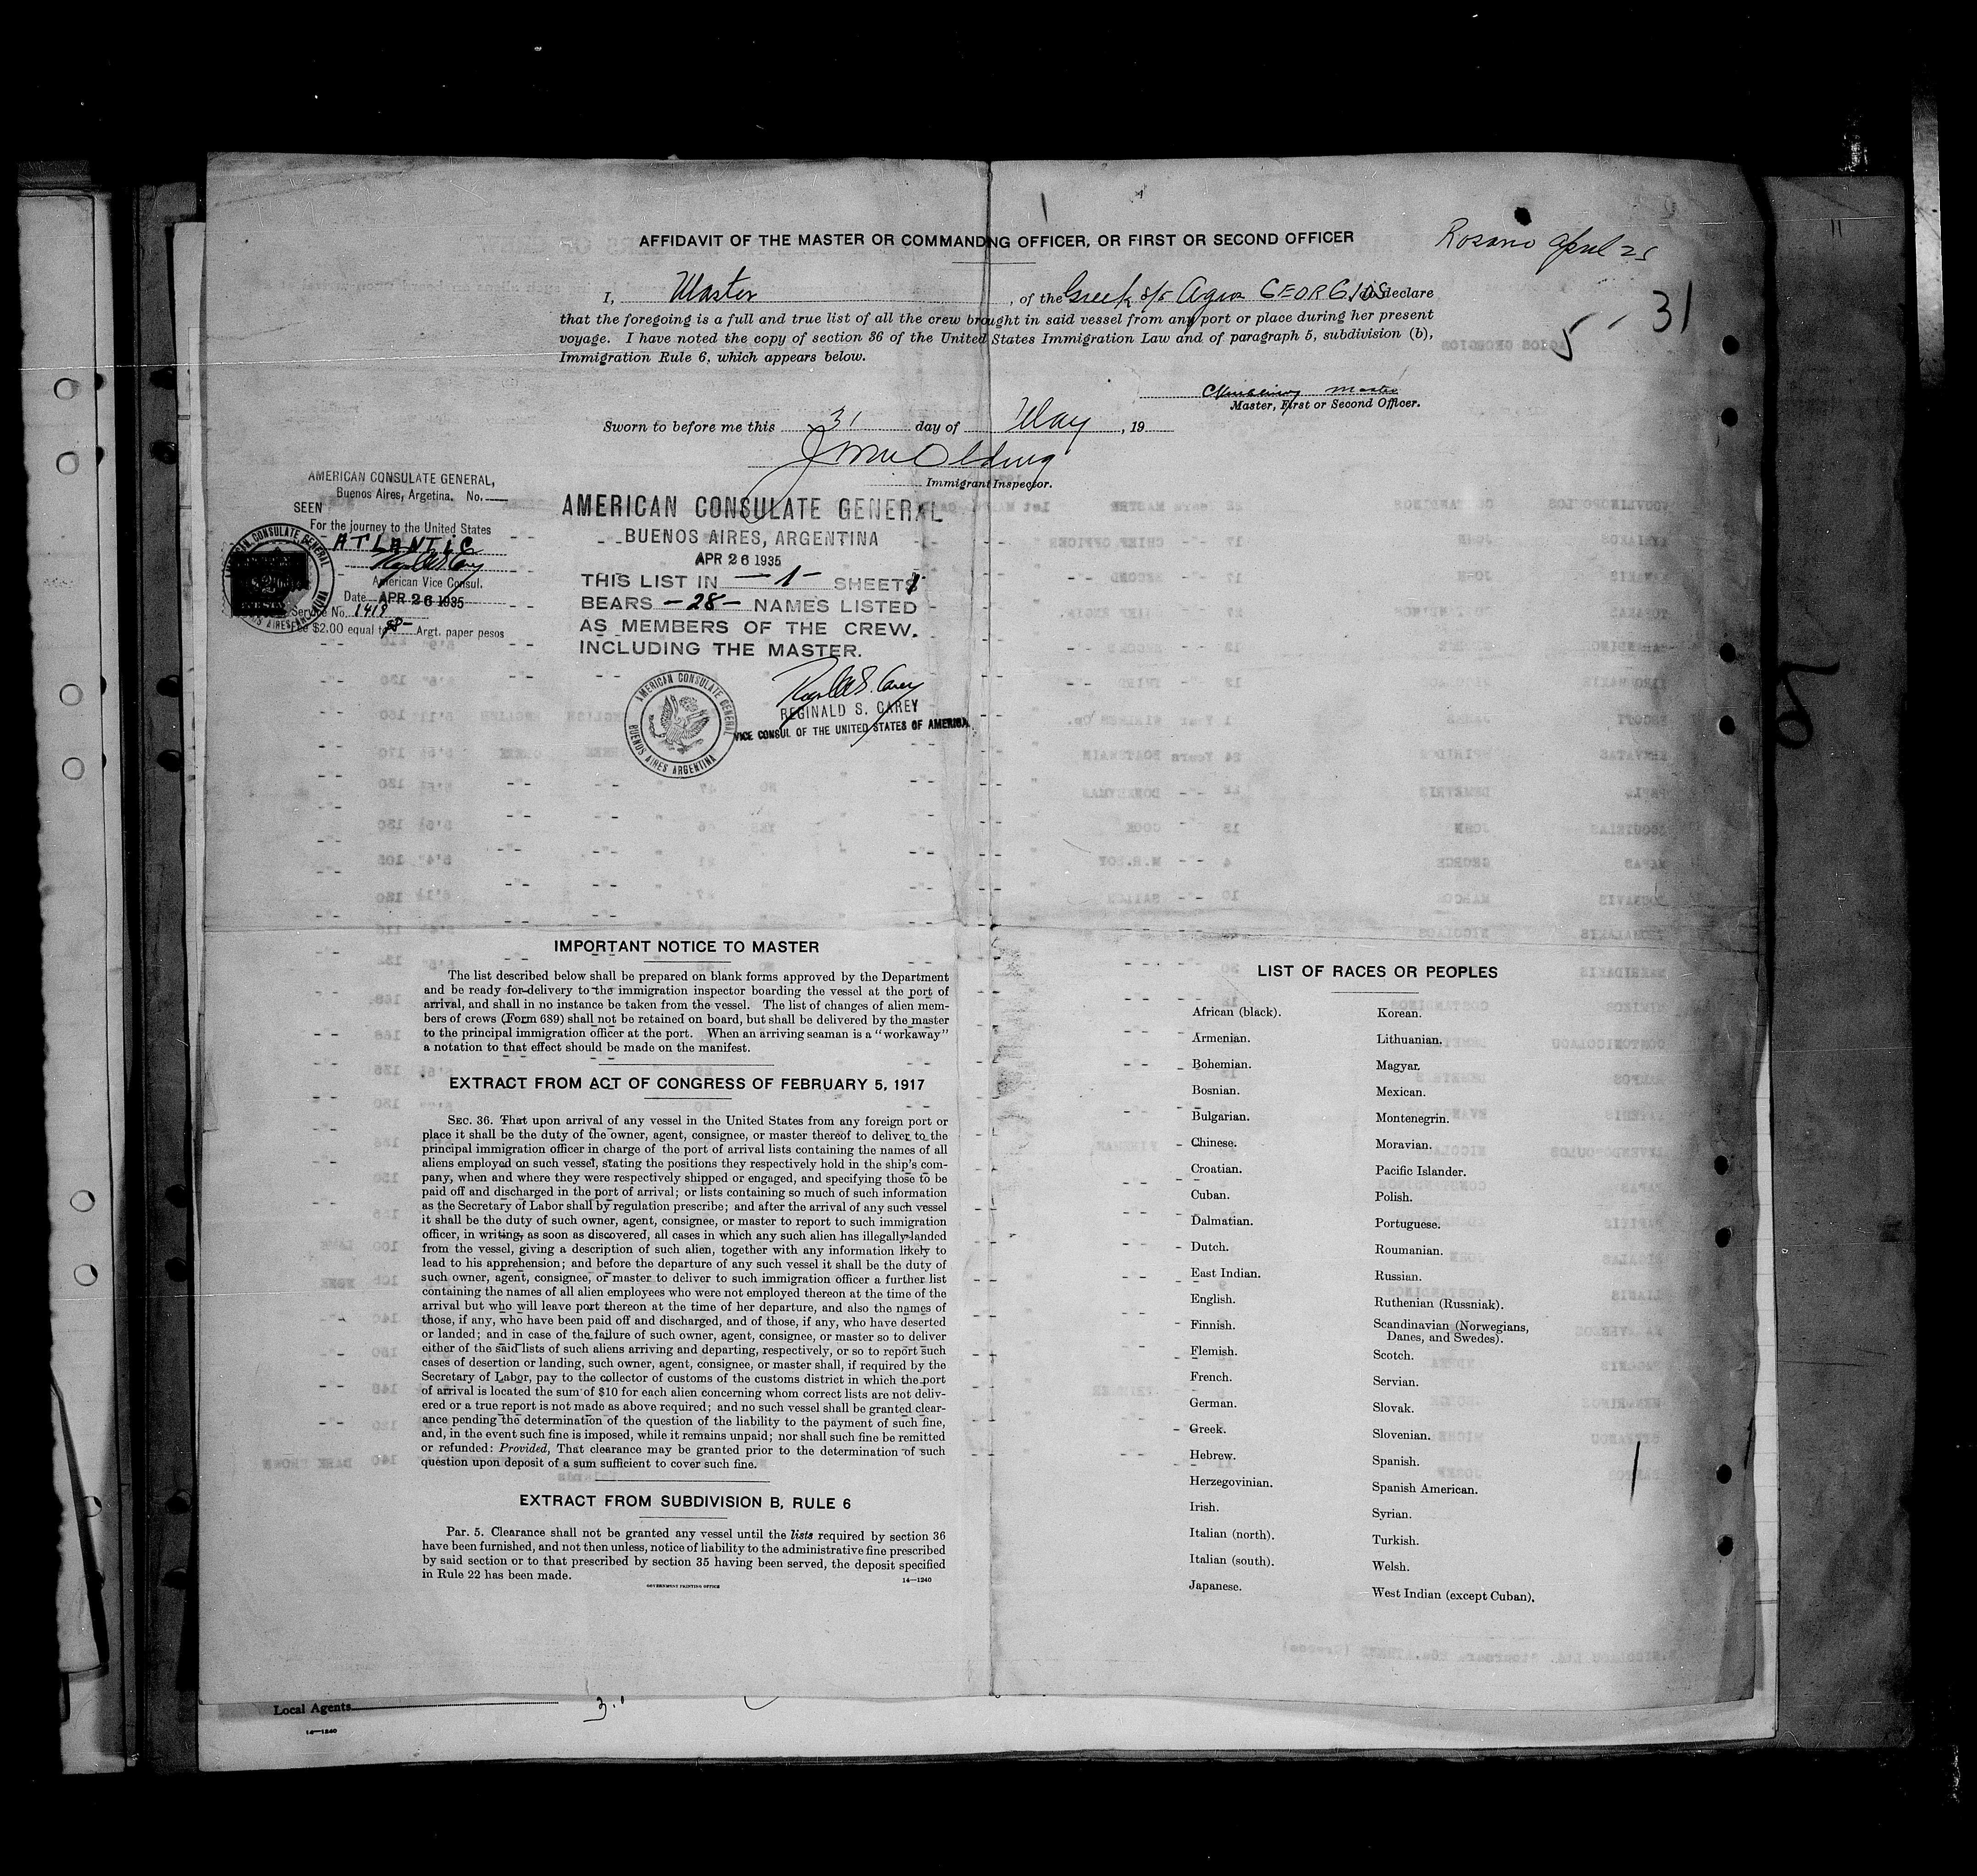 AFFIDAVIT OF THE MASTER OR COMMANDING OFFICER, OR FIRST OR SECOND OFFICER
Rosario April 25
I, Master, of the Greek s/s Agios GEORGIOS do declare
that the foregoing is a full and true list of all the crew brought in said vessel from any port or place during her present
voyage. I have noted the copy of section 36 of the United States Immigration Law and of paragraph 5, subdivision (b),
Immigration Rule 6, which appears below.
5 - 31
Master
Master, First or Second Officer.
Sworn to before me this 31 day of May, 19
Immigrant Inspector.
AMERICAN CONSULATE GENERAL,
Buenos Aires, Argetina. No.
SEEN
For the journey to the United States
ATLANTIC
American Vice Consul.
Date APR 26 1935
Service No. 1419
Fee $2.00 equal to Argt. paper pesos
AMERICAN CONSULATE GENERAL
BUENOS AIRES, ARGENTINA
AMERICAN CONSULATE GENERAL
BUENOS AIRES, ARGENTINA
APR 26 1935
THIS LIST IN -1- SHEETS
BEARS -28- NAMES LISTED
AS MEMBERS OF THE CREW.
INCLUDING THE MASTER.
Reginald S. Carey
REGINALD S. CAREY
VICE CONSUL OF THE UNITED STATES OF AMERICA
AMERICAN CONSULATE GENERAL
BUENOS AIRES ARGENTINA
IMPORTANT NOTICE TO MASTER
The list described below shall be prepared on blank forms approved by the Department
and be ready for delivery to the immigration inspector boarding the vessel at the port of
arrival, and shall in no instance be taken from the vessel. The list of changes of alien mem-
bers of crews (Form 689) shall not be retained on board, but shall be delivered by the master
to the principal immigration officer at the port. When an arriving seaman is a "workaway"
a notation to that effect should be made on the manifest.
EXTRACT FROM ACT OF CONGRESS OF FEBRUARY 5, 1917
SEC. 36. That upon arrival of any vessel in the United States from any foreign port or
place it shall be the duty of the owner, agent, consignee, or master thereof to deliver to the
principal immigration officer in charge of the port of arrival lists containing the names of all
aliens employed on such vessel, stating the positions they respectively hold in the ship's com-
pany, when and where they were respectively shipped or engaged, and specifying those to be
paid off and discharged in the port of arrival; or lists containing so much of such information
as the Secretary of Labor shall by regulation prescribe; and after the arrival of any such vessel
it shall be the duty of such owner, agent, consignee, or master to report to such immigration
officer, in writing, as soon as discovered, all cases in which any such alien has illegally landed
from the vessel, giving a description of such alien, together with any information likely to
lead to his apprehension; and before the departure of any such vessel it shall be the duty of
such owner, agent, consignee, or master to deliver to such immigration officer a further list
containing the names of all alien employees who were not employed thereon at the time of the
arrival but who will leave port thereon at the time of her departure, and also the names of
those, if any, who have been paid off and discharged, and of those, if any, who have deserted
or landed; and in case of the failure of such owner, agent, consignee, or master so to deliver
either of the said lists of such aliens arriving and departing, respectively, or so to report such
cases of desertion or landing, such owner, agent, consignee, or master shall, if required by the
Secretary of Labor, pay to the collector of customs of the customs district in which the port
of arrival is located the sum of $10 for each alien concerning whom correct lists are not deliv-
ered or a true report is not made as above required; and no such vessel shall be granted clear-
ance pending the determination of the question of the liability to the payment of such fine,
and, in the event such fine is imposed, while it remains unpaid; nor shall such fine be remitted
or refunded: Provided, That clearance may be granted prior to the determination of such
question upon deposit of a sum sufficient to cover such fine.
EXTRACT FROM SUBDIVISION B, RULE 6
Par. 5. Clearance shall not be granted any vessel until the lists required by section 36
have been furnished, and not then unless, notice of liability to the administrative fine prescribed
by said section or to that prescribed by section 35 having been served, the deposit specified
in Rule 22 has been made.
GOVERNMENT PRINTING OFFICE 14—1240
LIST OF RACES OR PEOPLES
African (black).
Armenian.
Bohemian.
Bosnian.
Bulgarian.
Chinese.
Croatian.
Cuban.
Dalmatian.
Dutch.
East Indian.
English.
Finnish.
Flemish.
French.
German.
Greek.
Hebrew.
Herzegovinian.
Irish.
Italian (north).
Italian (south).
Japanese.
Korean.
Lithuanian.
Magyar.
Mexican.
Montenegrin.
Moravian.
Pacific Islander.
Polish.
Portuguese.
Roumanian.
Russian.
Ruthenian (Russniak).
Scandinavian (Norwegians,
Danes, and Swedes).
Scotch.
Servian.
Slovak.
Slovenian.
Spanish.
Spanish American.
Syrian.
Turkish.
Welsh.
West Indian (except Cuban).
Local Agents
14—1240